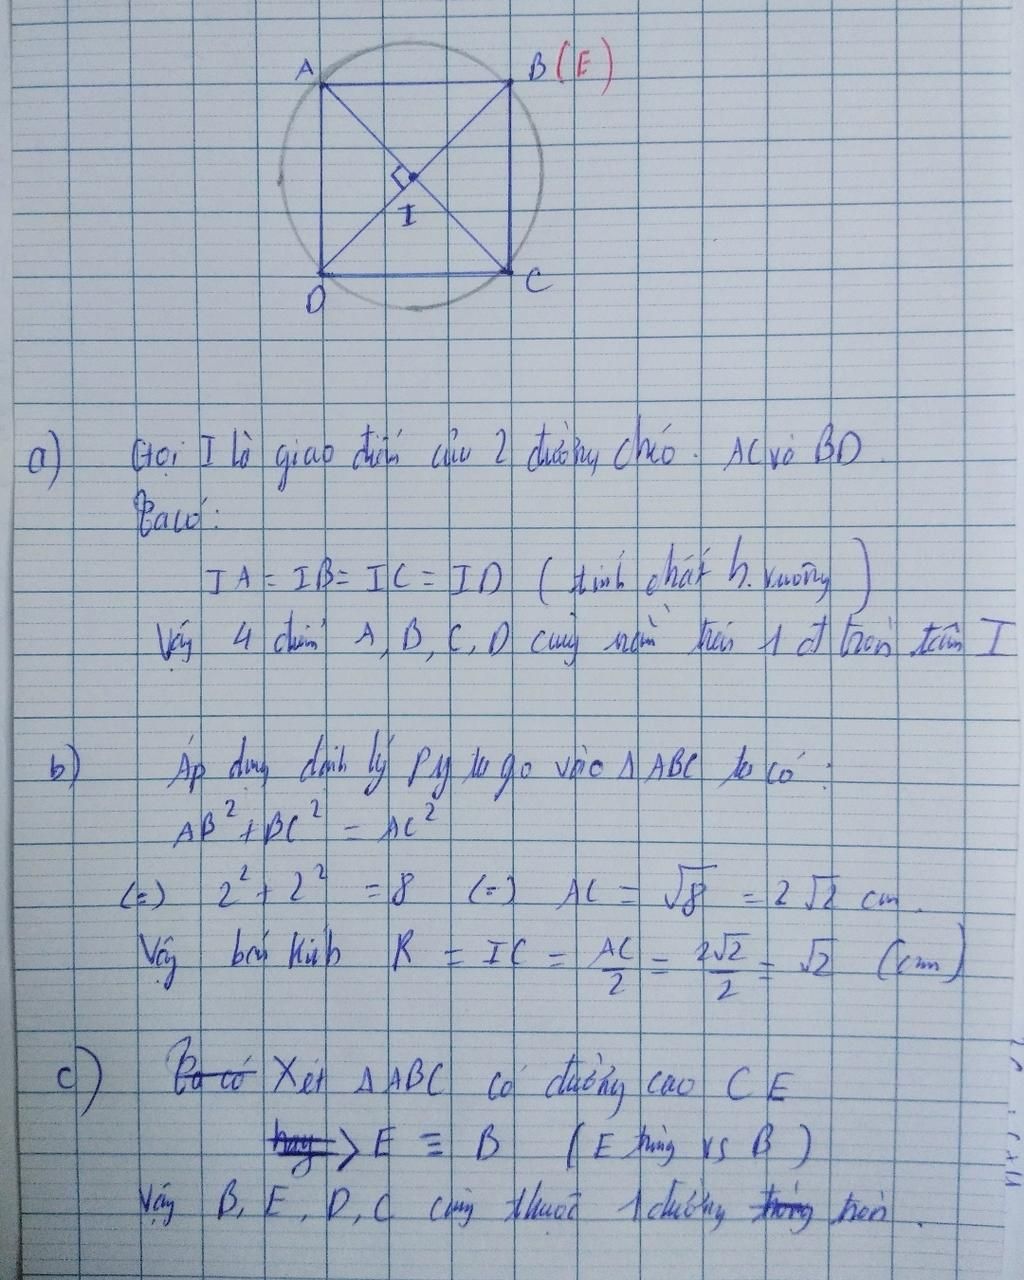 A
B (E)
I
D
C
a) Gọi I là giao điểm của 2 đường chéo. AC và BD.
Ta có:
IA = IB = IC = ID (tính chất h. vuông)
Vậy 4 điểm A, B, C, D cùng nằm trên 1 đ tròn tâm I
b) Áp dụng định lý Py ta go vào Δ ABC ta có:
AB² + BC² = AC²
(=) 2² + 2² = 8 (=) AC = √8 = 2√2 cm.
Vậy bán kính R = IC = AC/2 = 2√2/2 = √2 (cm)
c) Ta có Xét Δ ABC có đường cao CE
hay > E ≡ B (E trùng vs B)
Vậy B, E, D, C cùng thuộc 1 đường tròn.